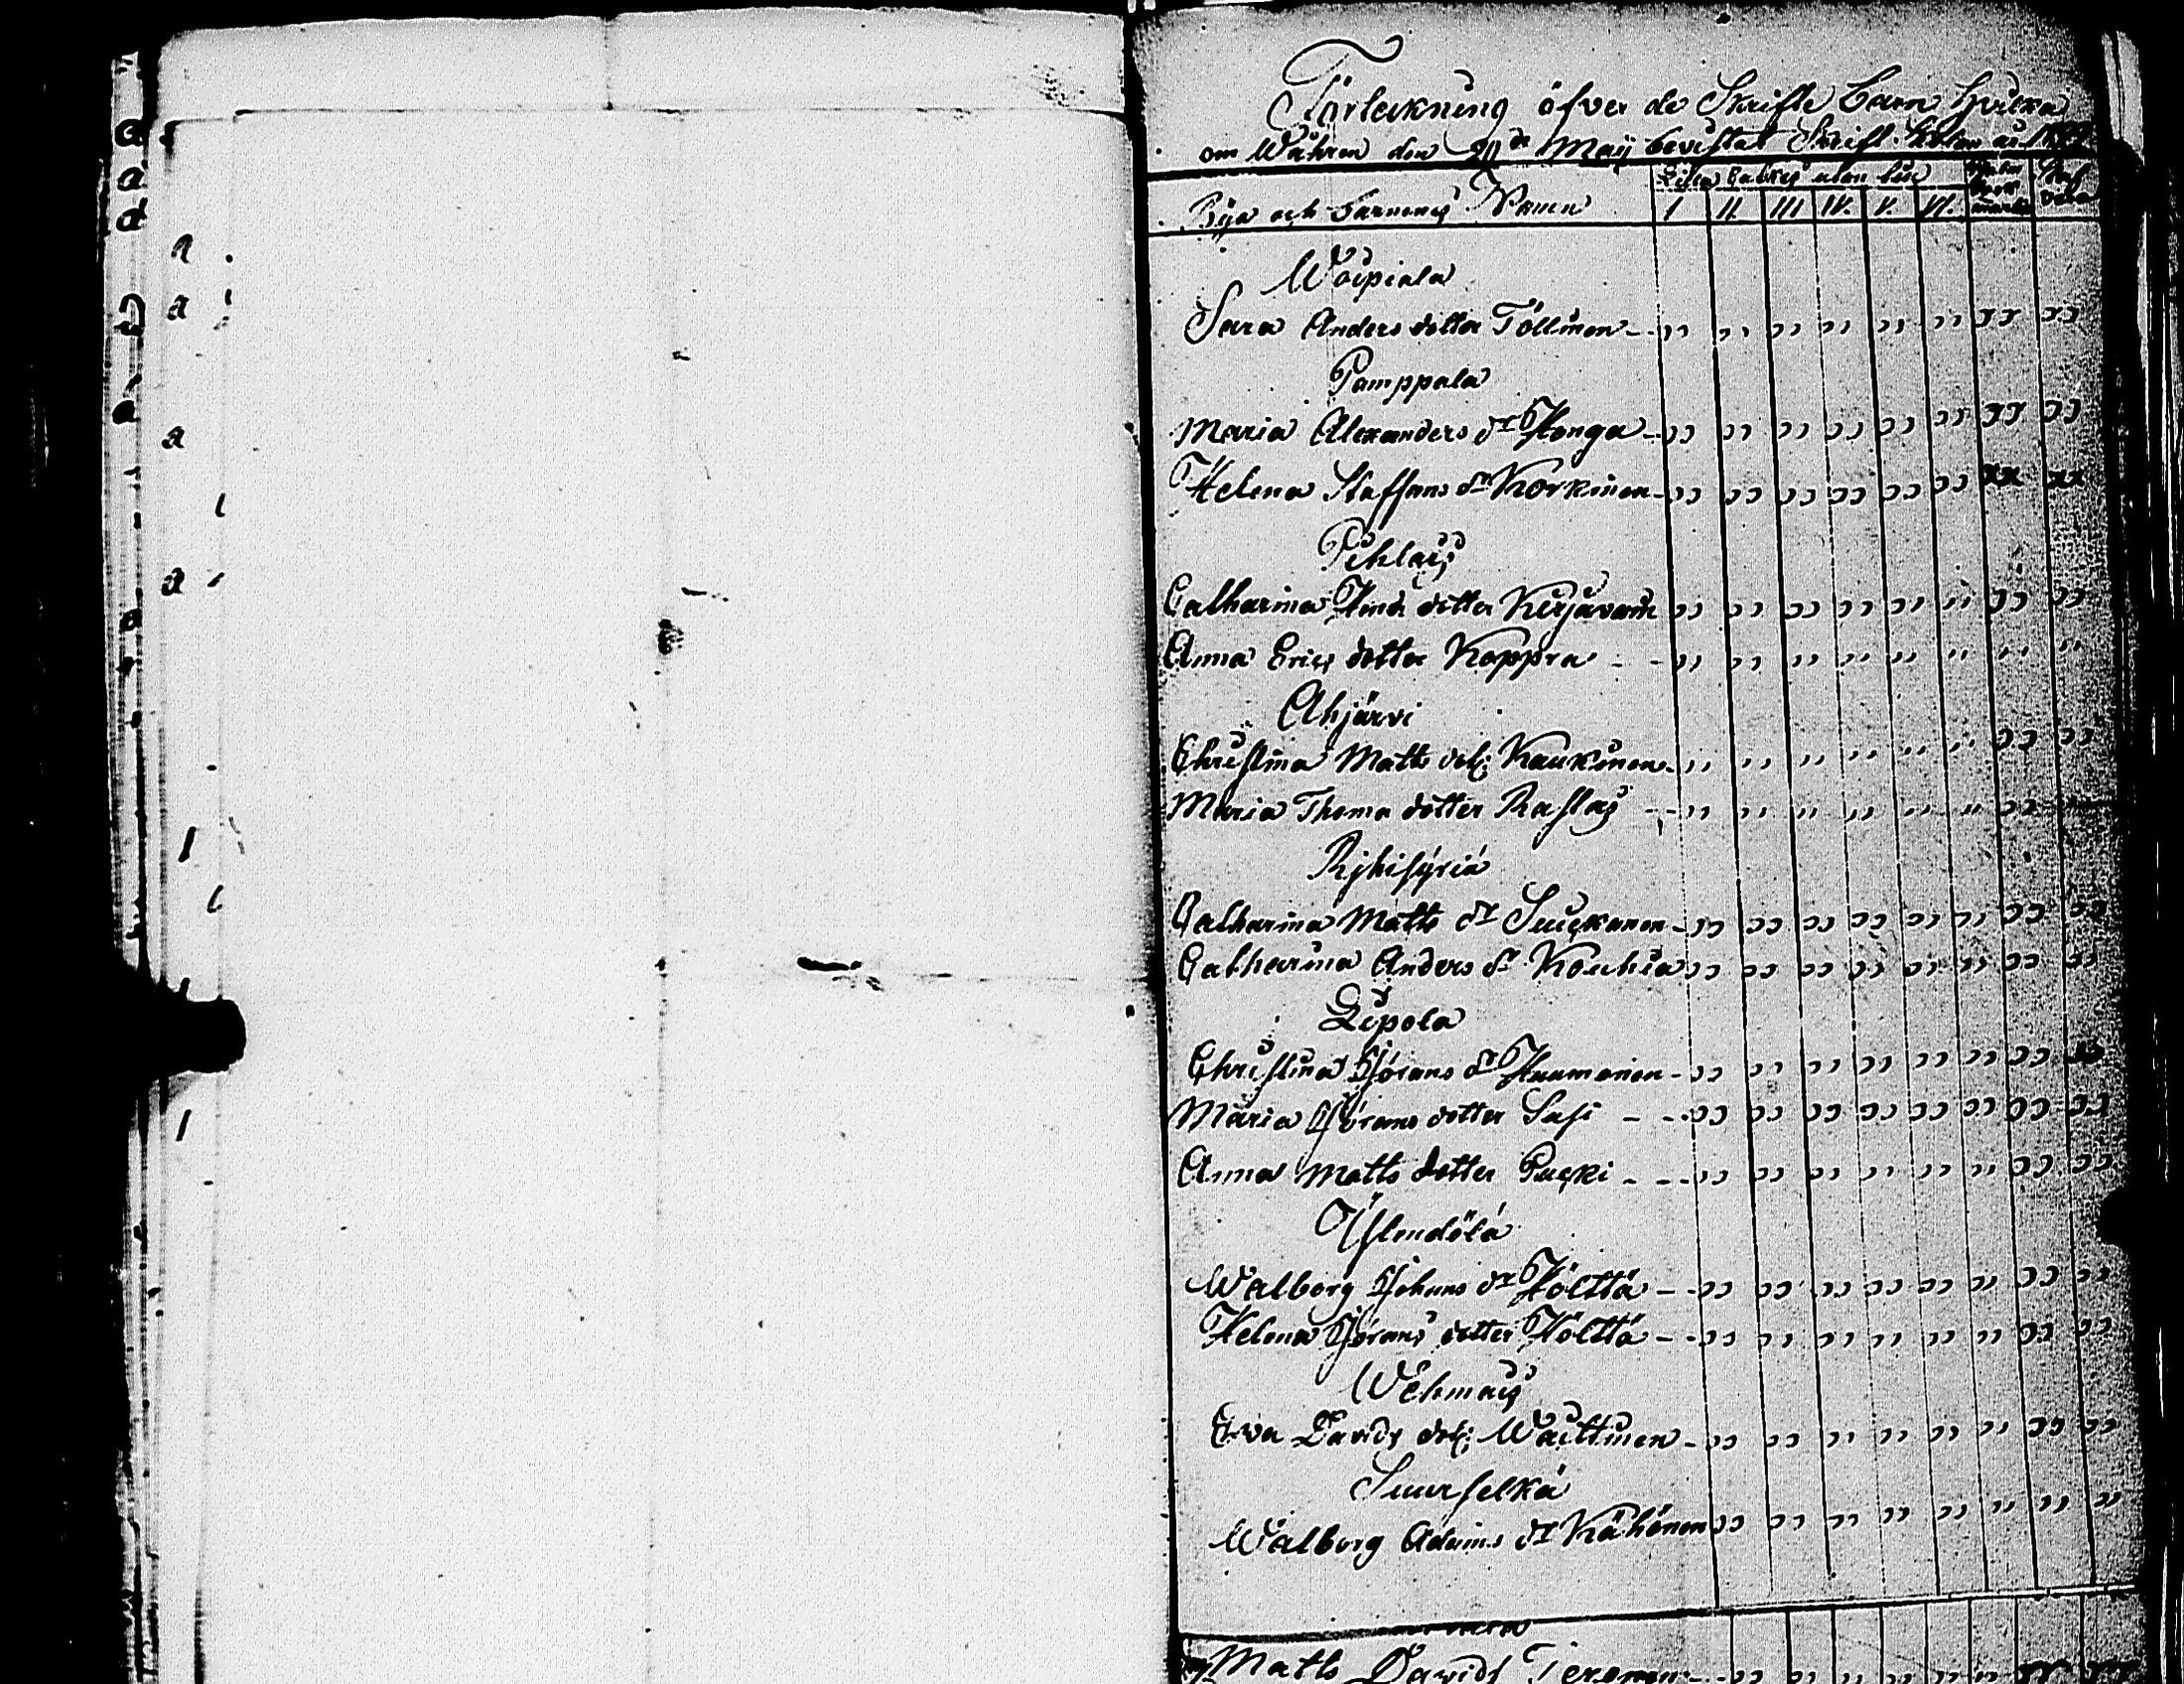 Förteckning öfver de Skrifte Barn hvilka
om Wåhren den 20de Maij bevistat Skrift Skolan
Lilla Catches utan bok
Bya och Barnens Namn I II. III IV. V. VI.
Woipiala
Sara Anders dotter Töllinen - ,, ,, ,, ,, ,, ,, ,, ,,
Pamppala
Maria Alexanders dr Honga - ,, ,, ,, ,, ,, ,, ,, ,,
Helena Staffans dr Korkinen - ,, ,, ,, ,, ,, ,, xx xx
Pihlais
Catharina Hind: dotter Kirjavain ,, ,, ,, ,, ,, ,, ,, ,,
Anna Erics dotter Koppra - - ,, ,, ,, ,, ,, ,, ,, ,,
Ahjärvi
Christina Matts dot: Kaukinen - ,, ,, ,, ,, ,, ,, ,, ,,
Maria Thoma dotter Rastas - - ,, ,, ,, ,, ,, ,, ,,
Rjhisyriä
Catharina Matts dr Suickanen - ,, ,, ,, ,, ,, ,, ,, ,,
Catharina Anders dr Kouhia ,, ,, ,, ,, ,, ,, ,, ,,
Lipola
Christina Görans dr Huumonen - ,, ,, ,, ,, ,, ,, ,, ,,
Maria Görans dotter Susi - - ,, ,, ,, ,, ,, ,, ,, ,,
Anna Matts dotter Pucki - - - ,, ,, ,, ,, ,, ,, ,, ,,
Yslendölä
Walborg Johans dr Hölttä - - ,, ,, ,, ,, ,, ,, ,, ,,
Helena Görans dotter Hölttä - - ,, ,, ,, ,, ,, ,, ,, ,,
Wehmais
Eva Davids dot: Waittinen - ,, ,, ,, ,, ,, ,, ,, ,,
Suurselkä
Walborg Adams dr Kähönen ,, ,, ,, ,, ,, ,, ,, ,,
Matts Davids Teronen - - ,, ,, ,, ,, ,, ,,